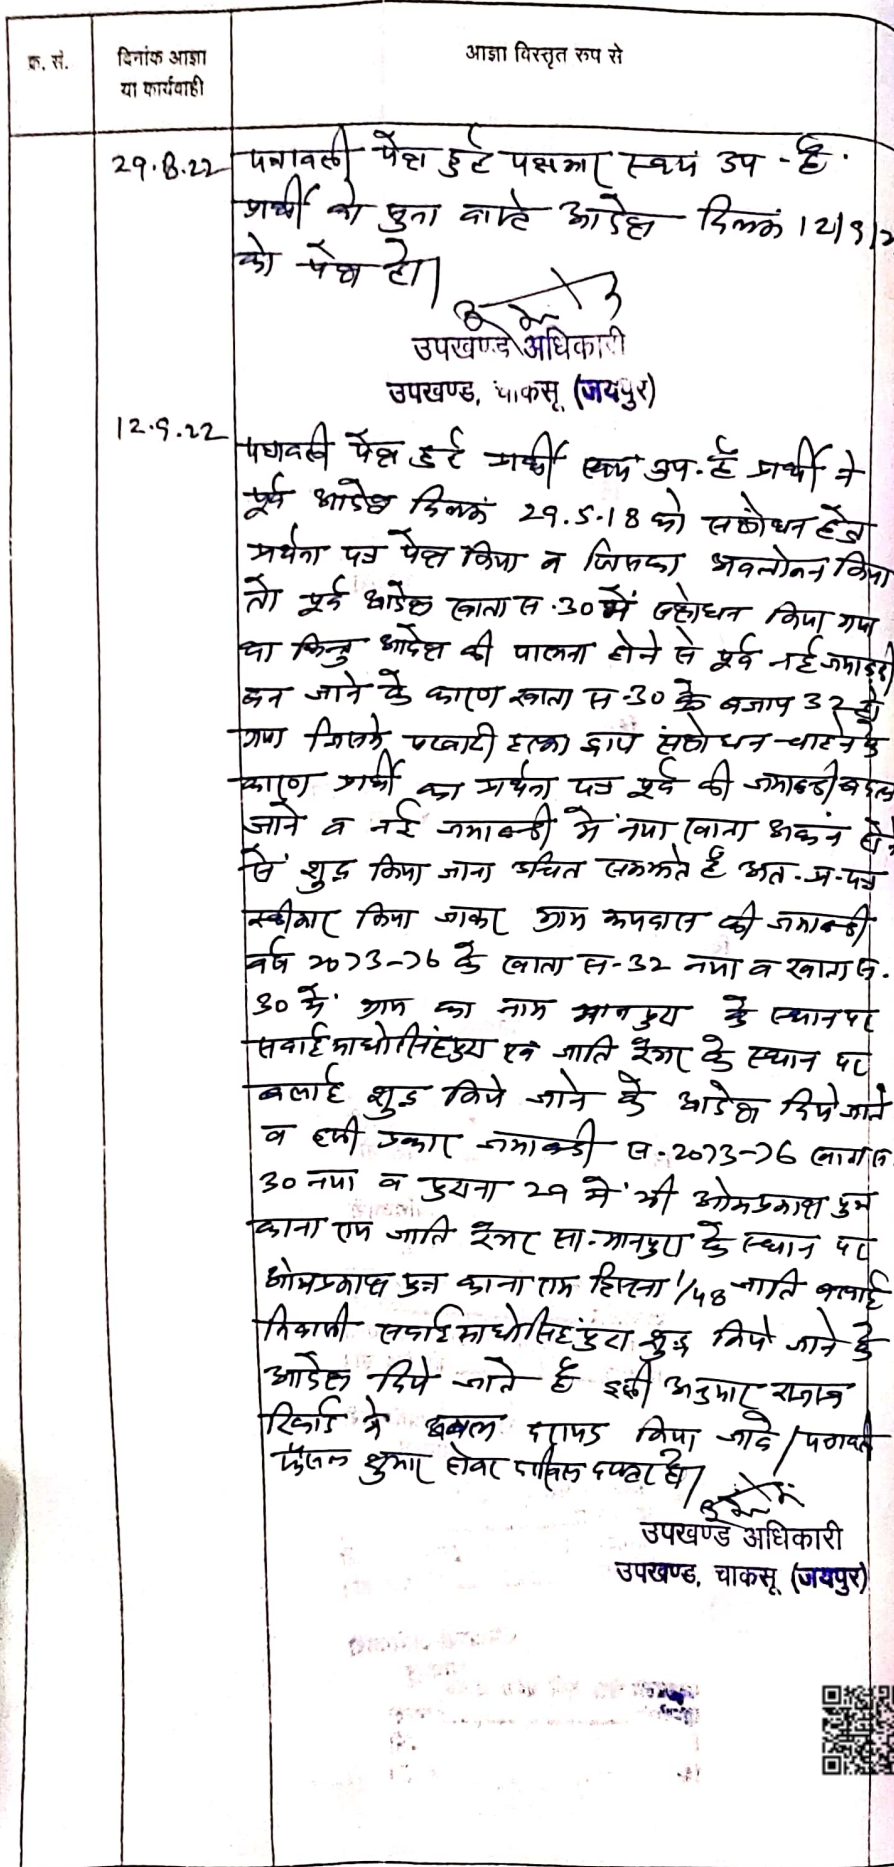 क्र. सं.
दिनांक आज्ञा
या कार्यवाही
आज्ञा विस्तृत रुप से
29.8.22
पत्रावली पेश हुई पक्षकार स्वयं उप - है.
प्रार्थी को सुना वास्ते आदेश दिनांक 12/9/2
को पेश हो।
उपखण्ड अधिकारी
उपखण्ड, चाकसू (जयपुर)
12.9.22
पत्रावली पेश हुई प्रार्थी स्वयं उप. है प्रार्थी ने
पूर्व आदेश दिनांक 29.5.18 को संशोधन हेतु
प्रार्थना पत्र पेश किया व जिसका अवलोकन किया
तो पूर्व आदेश खाता स. 30 में संशोधन किया गया
था किन्तु आदेश की पालना होने से पूर्व नई जमाबंदी
बन जाने के कारण खाता स. 30 के बजाय 32 हो
गया जिसमें पटवारी हल्का द्वारा संशोधन चाहने के
कारण प्रार्थी का प्रार्थना पत्र पूर्व की जमाबन्दी बदल
जाने व नई जमाबन्दी में नया खाता अकंन होने
से शुद्ध किया जाना उचित समझते है अत. प्र-पत्र
स्वीकार किया जाकर ग्राम की जमाबन्दी
वर्ष 2073-76 के खाता स-32 नया व खाता स.
30 में ग्राम का नाम मानपुरा के स्थान पर
सवाई माधोसिंहपुरा एवं जाति रैगर के स्थान पर
बलाई शुद्ध किये जाने के आदेश दिये जाते
व इसी प्रकार जमाबन्दी स. 2073-76 खाता स.
30 नया व पुराना 29 में भी ओमप्रकाश पुत्र
काना राम जाति रैगर सा. मानपुरा के स्थान पर
ओमप्रकाश पुत्र काना राम हिस्सा 1/48 जाति बलाई
निवासी सवाई माधोसिहंपुरा शुद्ध किये जाने के
आदेश दिये जाते है इसी अनुसार राजस्व
रिकॉर्ड में अमल दरामद किया जावे। पत्रावली
फैसल शुमार होकर दाखिल दफ्तर हो।
उपखण्ड अधिकारी
उपखण्ड, चाकसू (जयपुर)